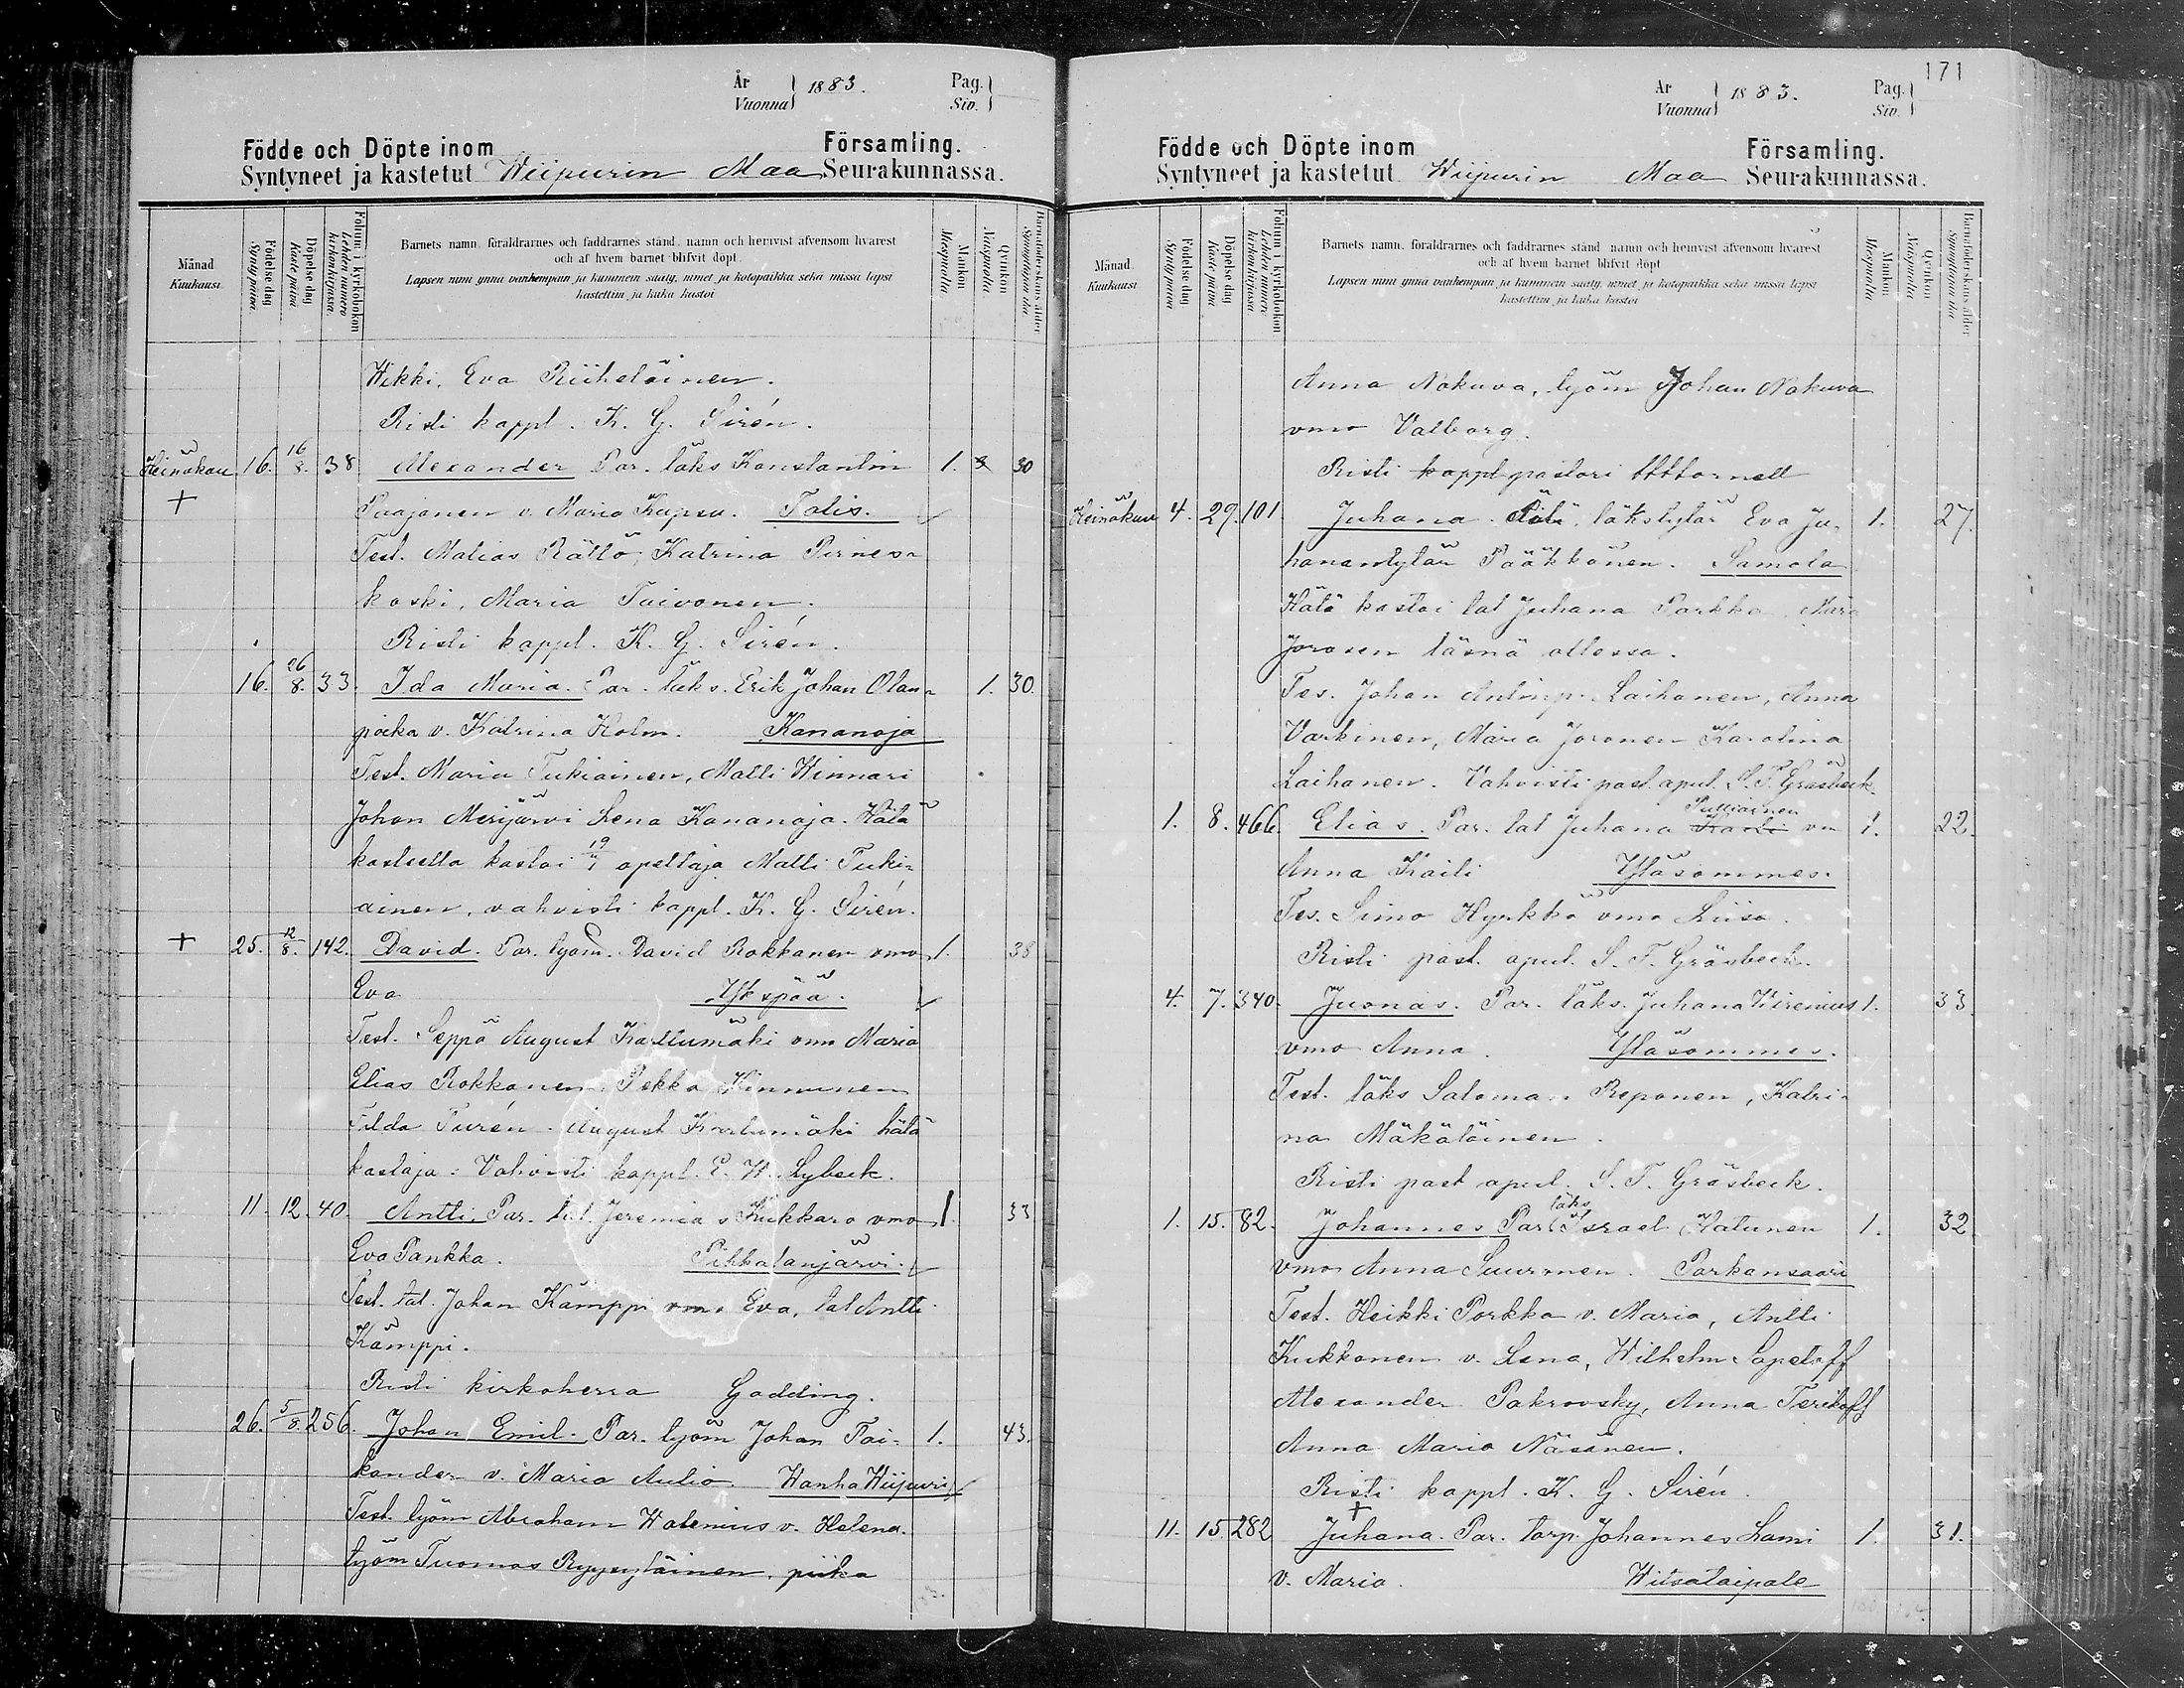 År
Vuonna } 1883.
Pag.
Siv. }
Födde och Döpte inom Församling.
Syntyneet ja kastetut Wiipurin Maa Seurakunnassa.
Månad
Kuukausi
Födelse dag
Syntypäivä.
Döpelse dag
Kaste päivä.
Folium i kyrkoboken
Lehden numero
kirkonkirjassa.
Barnets namn, föräldrarnes och faddrarnes stånd, namn och hemvist äfvensom hvarest
och af hvem barnet blifvit döpt.
Lapsen nimi ynnä vanhempain ja kummein sääty, nimet ja kotopaikka sekä missä lapsi
kastettiin ja kuka kastoi
Mankön
Miespuolia
Qvinkön
Naispuolia.
Barnaföderskans ålder
Synnyttäjän ikä
Wikki, Eva Riiheläinen.
Risti kappl. K. G. Sirén.
Heinäkuu 16. 16/8. 38 Alexander Par. läks Konstantin 1. 30
+ Paajanen v. Maria Kupsu. Talis.
Test. Matias Rättö, Katrina Pirnes-
koski, Maria Toivonen.
Risti kappl. K. G. Sirén.
16. 26/8. 33. Ida Maria. Par. läks. Erik Johan Olan- 1. 30.
poika v. Katrina Holm. Kananoja
Test. Maria Tukiainen, Matti Winnari
Johan Merijärvi Lena Kananoja. Hätä
kasteella kastoi opettaja Matti Tuki-
ainen, vahvisti kappl. K. G. Sirén.
+ 25. 12/8. 142. David. Par. työm. David Rokkanen vmo 1. 38
Eva Ykspää.
Test. Seppä August Karttumäki vmo Maria
Elias Rokkanen Pekka Kinnunen
Tilda Turén. August Karttumäki hätä
kastaja. Vahvisti kappl. E. W. Lybeck.
11. 12. 40. Antti. Par. tal. Jeremias Kukkaro vmo 1. 33
Eva Pankka. Pihkalanjärvi.
Test. tal. Johan Kämppi vmo Eva, tal Antti
Kämppi.
Risti kirkoherra Gadding.
26. 5/8. 256. Johan Emil. Par. työm Johan Tai- 1. 43.
kander v. Maria Aulio. Wanha Wiipuri
Test. työm Abraham Walenius v. Helena.
työm Tuomas Ryypyläinen, piika
171
År
Vuonna } 1883.
Pag.
Siv. }
Födde och Döpte inom Församling.
Syntyneet ja kastetut Wiipurin Maa Seurakunnassa.
Månad.
Kuukausi
Födelse dag
Syntypäivä
Döpelse dag
Kaste päivä
Folium i kyrkoboken
Lehden numero
kirkonkirjassa
Barnets namn, föräldrarnes och faddrarnes stånd, namn och hemvist äfvensom hvarest
och af hvem barnet blifvit döpt
Lapsen nimi ynnä vanhempain ja kummein sääty, nimet ja kotopaikka sekä missä lapsi
kastettiin ja kuka kastoi
Mankön
Miespuolia
Qvinkön
Naispuolia
Barnaföderskans ålder
Synnyttäjän ikä
Anna Nakuva, työm Johan Nakuva
vmo Valborg.
Risti kappl pastori
Heinäkuu 4. 29. 101 Juhana. läkstytär Eva Ju- 1. 27.
hanantytär Pääkkönen. Samola
Hätä kastoi tal Juhana Parkko Maria
Jorosen läsnä ollessa.
Tes. Johan Antinp. Laihanen, Anna
Varkinen, Maria Joronen Karolina
Laihanen. Vahvisti past. apul. S. F. Gräsbeck.
Pulliainen
1. 8. 466. Elias. Par. tal Juhana Kaili vm 1. 22.
Anna Kaili Yläsommes.
Tes. Simo Hyrkkö vmo Liisa.
Risti past. apul. S. F. Gräsbeck.
4. 7. 340. Juonas. Par. läks. Juhana Wirenius 1. 33.
vmo Anna. Yläsommes.
Test. läks Saloman Reponen, Katri-
na Mäkäläinen.
Risti past apul. S. F. Gräsbeck.
läks
1. 15. 82. Johannes Par Israel Hatunen 1. 32
vmo Anna Suurmen. Parkansaari
Test. Heikki Porkka v. Maria, Antti
Kukkonen v. Lena, Wilhelm Sapeloff
Alexander Pakrovsky, Anna Terikoff
Anna Maria Näsänen.
Risti kappl. K. G. Sirén.
+
11. 15. 282 Juhana. Par. torp. Johannes Lami 1. 31.
v. Maria. Witsataipale